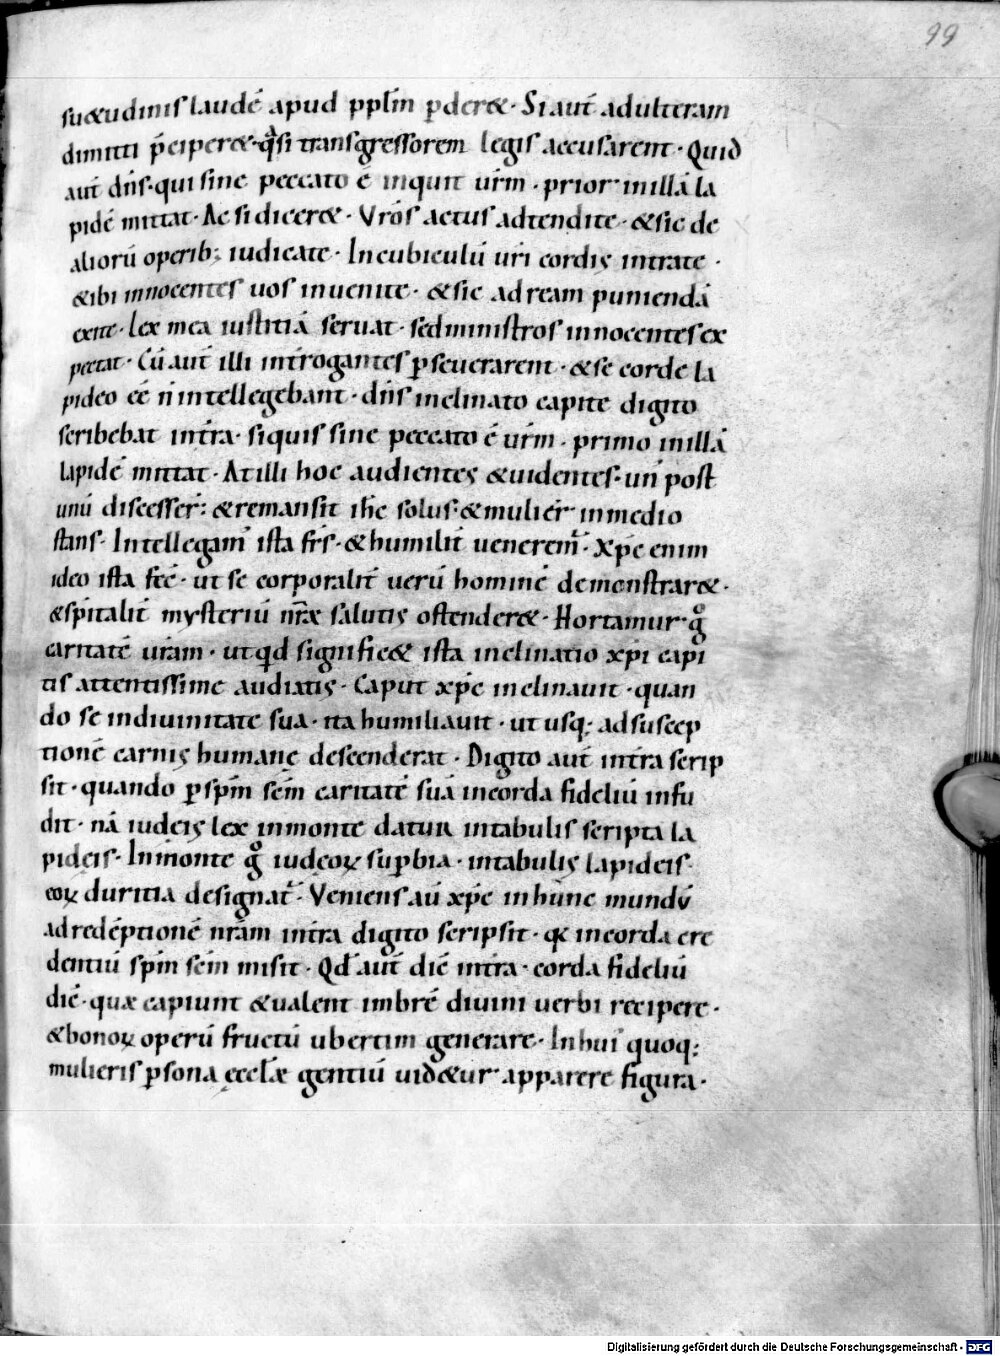 99
suetudinis laudē apud pplm̄ p̱deret · Si aut̄ adulteram
dimitti p̄ciperet · qͣsi transgressorem legis accusarent · Quid
aut̄ dn̄s · qui sine peccato ē inquit ur̄m · prior in illā la
pidē mittat · Ac si diceret · Vr̄os actus adtendite · & sic de
aliorū operib; iudicate · In cubiculū uri cordis intrate ·
& ibi innocentes uos inuenite · & sic ad ream puniendā
exite · Lex mea iustitiā seruat · sed ministros innocentes ex
pectat · Cū aut̄ illi int̄rogantes p̱seuerarent · & se corde la
pideo eē n̄ intellegebant · dn̄s inclinato capite digito
scribebat in t̄ra · siquis sine peccato ē ur̄m · primo in illā
lapidē mittat · At illi hoc audientes & uidentes · un' post
unū discesser̄: & remansit ih̄c solus: & mulier in medio
stans · Intellegam' ista fr̄s · & humilit̄ uenerem̄ · Xp̄c enim
ideo ista fec̄ · ut se corporalit̄ uerū hominē demonstraret ·
& sp̄italit̄ mysteriū nr̄æ salutis ostenderet · Hortamur · gͦ
caritatē ur̄am · ut qd̄ significet ista inclinatio xp̄i capi
tis attentissime audiatis · Caput xp̄c inclinauit · quan
do se in diuinitate sua · ita humiliauit · ut usq; ad suscep
tionē carnis humanę descenderat · Digito aut̄ in t̄ra scrip
sit · quando p̱ sp̄m sc̄m caritatē suā in corda fideliū infu
dit · nā iudęis lex in monte datur in tabulis scripta la
pideis · In monte gͦ iudęoꝝ sup̱bia · in tabulis lapideis ·
eoꝝ duritia designat̄ · Veniens aū xp̄c in hunc mundū
ad redēptionē nr̄am in t̄ra digito scripsit · qꝛ in corda cre
dentiū sp̄m sc̄m misit · Qd̄ aut̄ dic̄ in t̄ra · corda fideliū
dic̄ · quæ capiunt & ualent imbrē diuini uerbi recipere ·
& bonoꝝ operū fructū ubertim generare · In hui' quoq;
mulieris p̱sona ęccl̄æ gentiū uidetur apparere figura ·
Digitalisierung gefördert durch die Deutsche Forschungsgemeinschaft - DFG